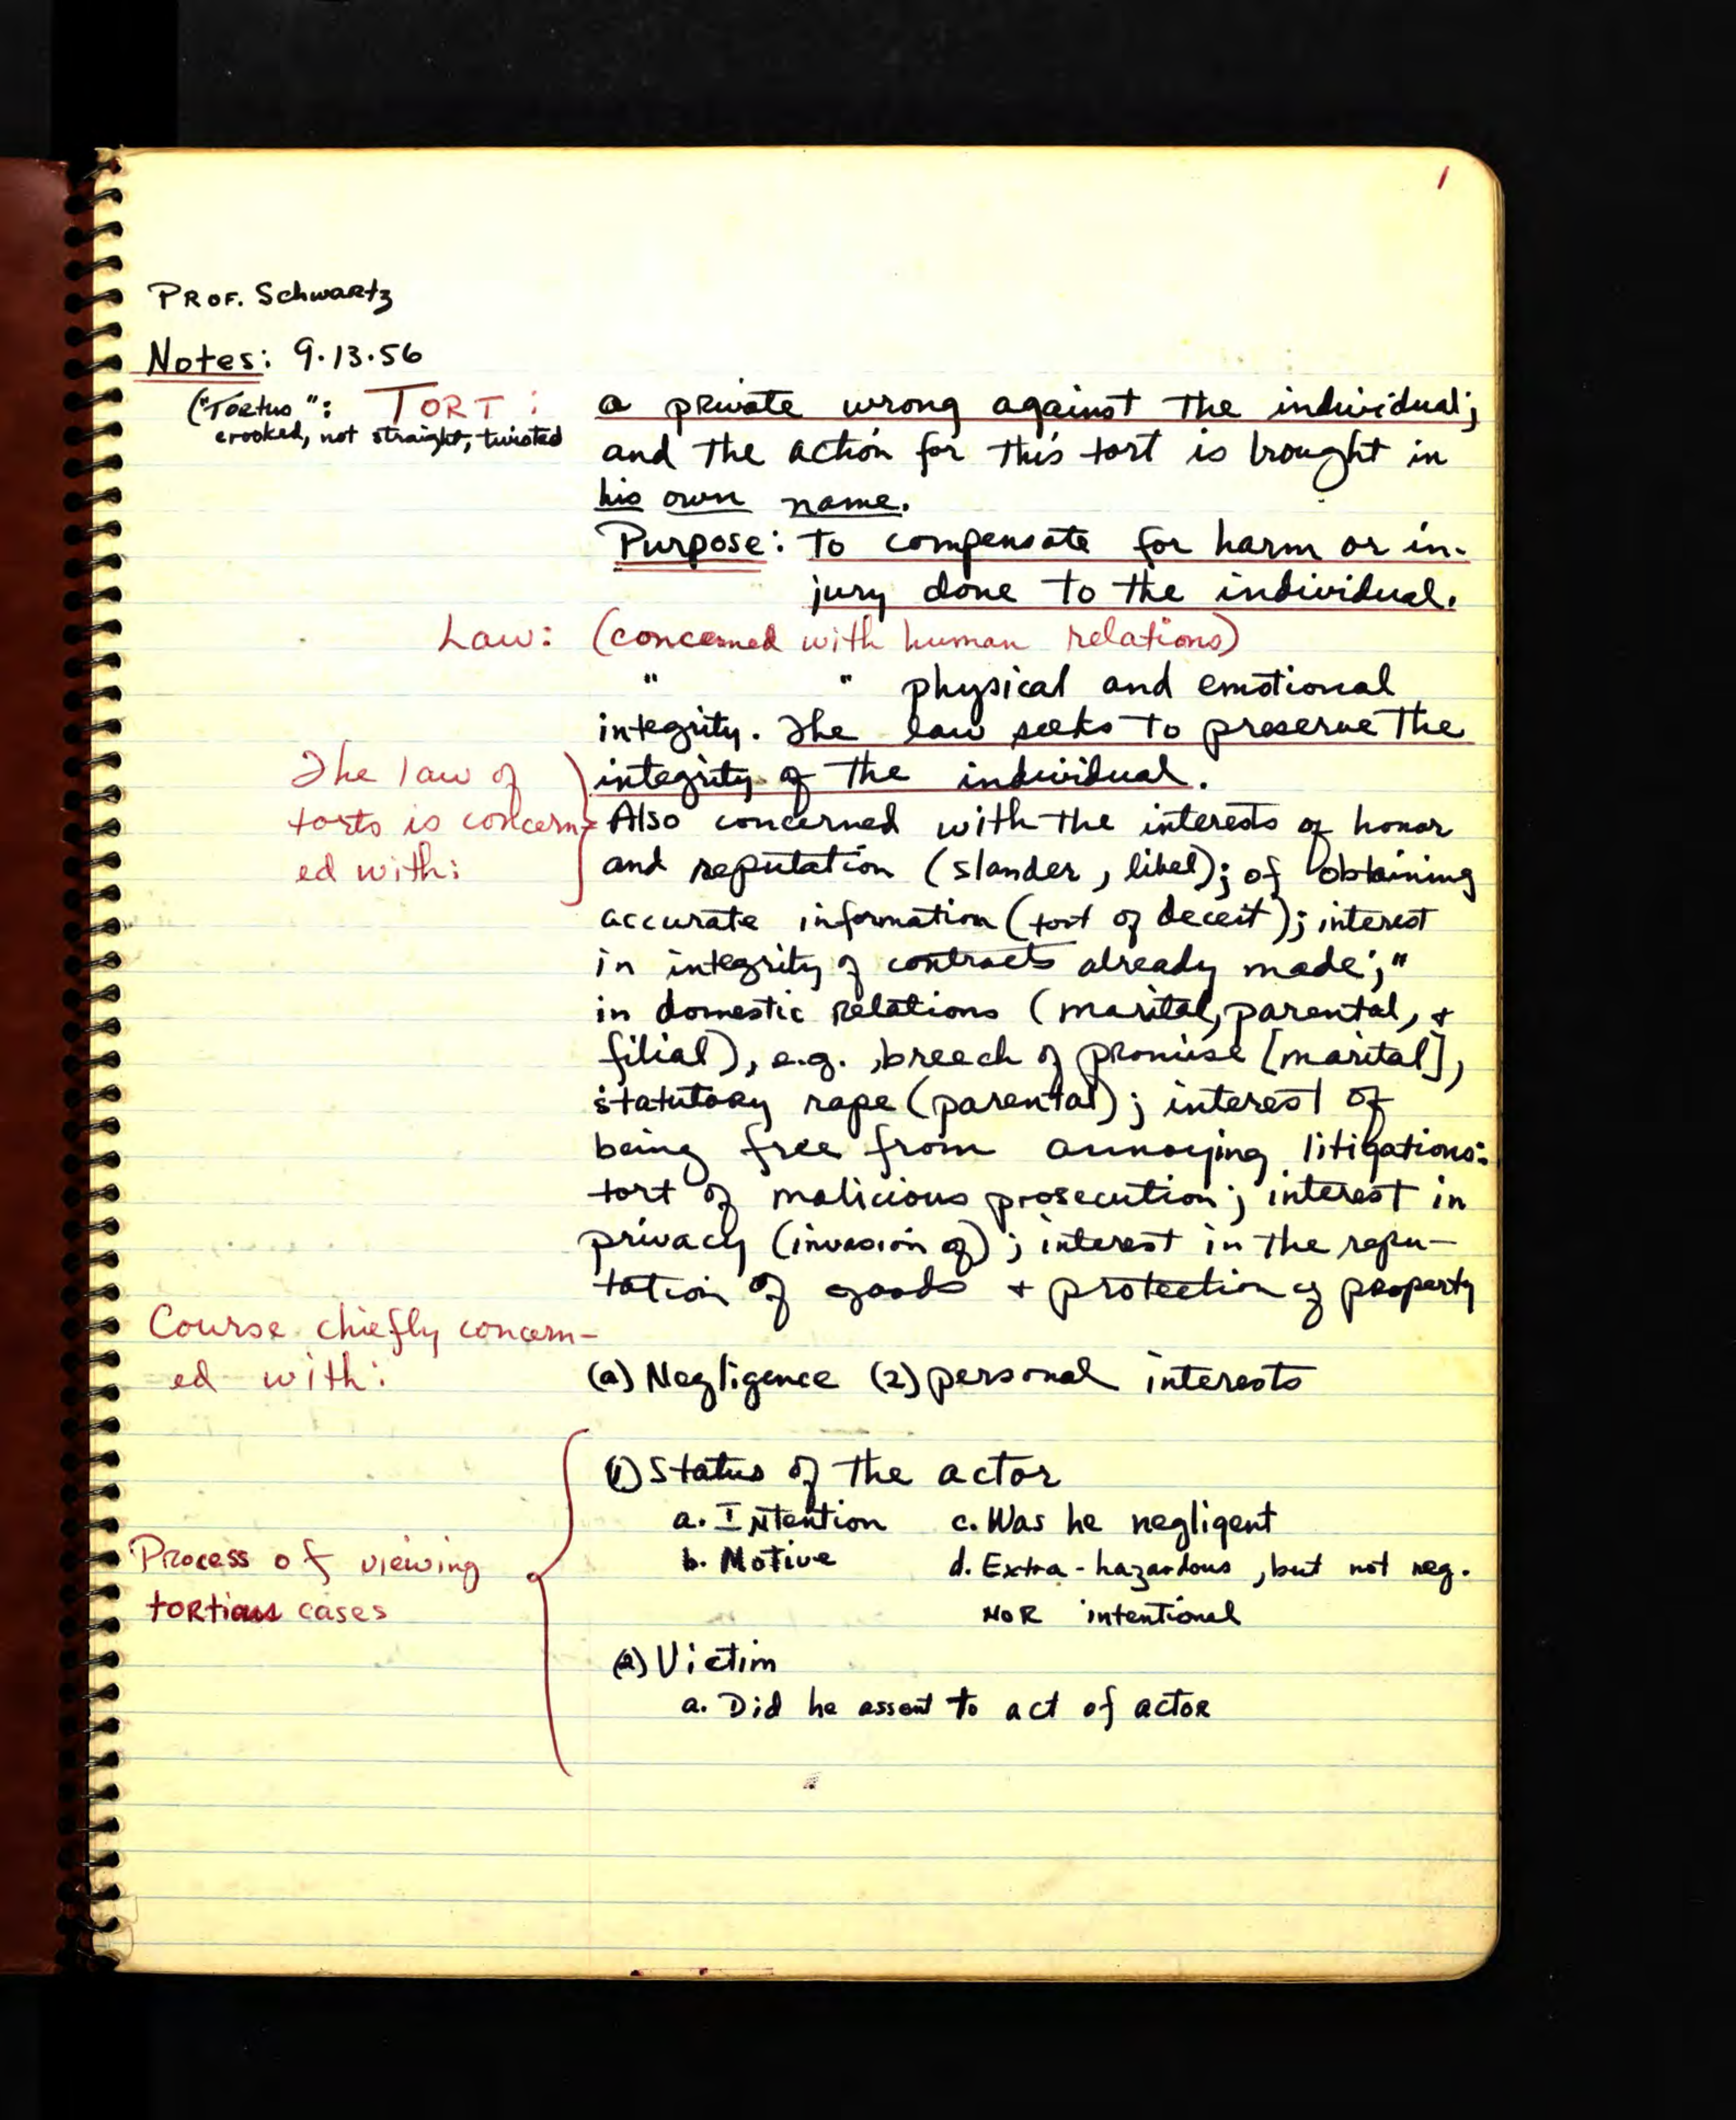 1
PROF. Schwartz
Notes: 9.13.56
("Tortus": TORT : a private wrong against the individual;
crooked, not straight, twisted
and the action for this tort is brought in
his own name.
Purpose: to compensate for harm or in-
jury done to the individual.
Law: (concerned with human relations)
" " physical and emotional
integrity. The law seeks to preserve the
The law of integrity of the individual.
torts is concern- Also concerned with the interests of honor
ed with: and reputation (slander, libel); of obtaining
accurate information (tort of deceit); interest
in integrity of contracts already made; "
in domestic relations (marital, parental, +
filial), e.g., breech of promise [marital],
statutory rape (parental); interest of
being free from annoying litigations:
tort of malicious prosecution; interest in
privacy (invasion of); interest in the repu-
tation of goods + protection of property
Course chiefly concern-
ed with: (a) Negligence (2) personal interests
(1) Status of the actor
a. Intention c. Was he negligent
b. Motive d. Extra-hazardous, but not neg.
NOR intentional
Process of viewing
tortious cases
(2) Victim
a. Did he assent to act of actor